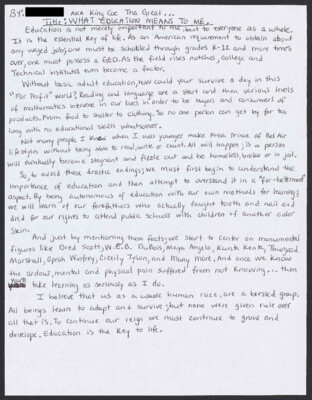 BY: AKA King Coe Tha Great...
Title: WHAT EDUCATION MEANS TO ME.
Education is not merely important to me but to everyone as a whole.
It is the essential key of life. As an American requirement to obtain about
any waged job, one must be schooled through grades K-12 and more times
over, one must possess a GED. As the field rises notches, college and
Technical institutes even become a factor.
Without basic adult education, how could your survive a day in this
"For Profit" world? Reading and language are a start and then various levels
of mathematics intrens in our lives in order to be buyers and consumers of
products. From food to shelter to clothing. So no one person can get by for too
long with no educational skills whatsoever.
Not many people I knew when I was younger make Fresh Prince of Bel Air
lifestyles without being able to read, write or count. All will happen; is a person
will eventually become stagnant and fizzle out and be homeless, broke or in jail.
So, to avoid these drastic endings; we must first begin to understand the
importance of education and then attempt to overstand it in a "far-bettered"
aspect. By being autonomous of education with our own methods for learning;
we will learn of our forefathers who actually fought tooth and nail and
died for our rights to attend public schools with children of another color
skin.
And just by mentioning them facts; we start to center on monumental
figures like Dred Scott, W.E.B. DuBois, Maya Angelo, Kunta Kente, Thurgood
Marshall, Oprah Winfrey, Cicely Tyson, and Many more. And once we know
the ardous, mental and physical pain suffered from not knowing... then
you'll take learning as seriously as I do.
I believe that us as a whole human race, are a blessed group.
All beings learn to adapt and survive; but none were given rule over
all that is. To continue our reign we must continue to grow and
develope. Education is the key to life.